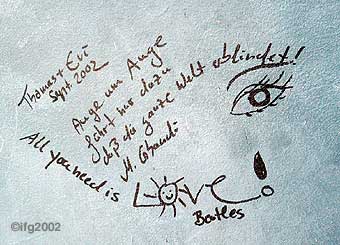 Thomas + Evi
Sept. 2002
Auge um Auge
führt nur dazu
daß die ganze Welt erblindet!
M. Ghandi
All you need is
Love!
Batles
©ifg2002